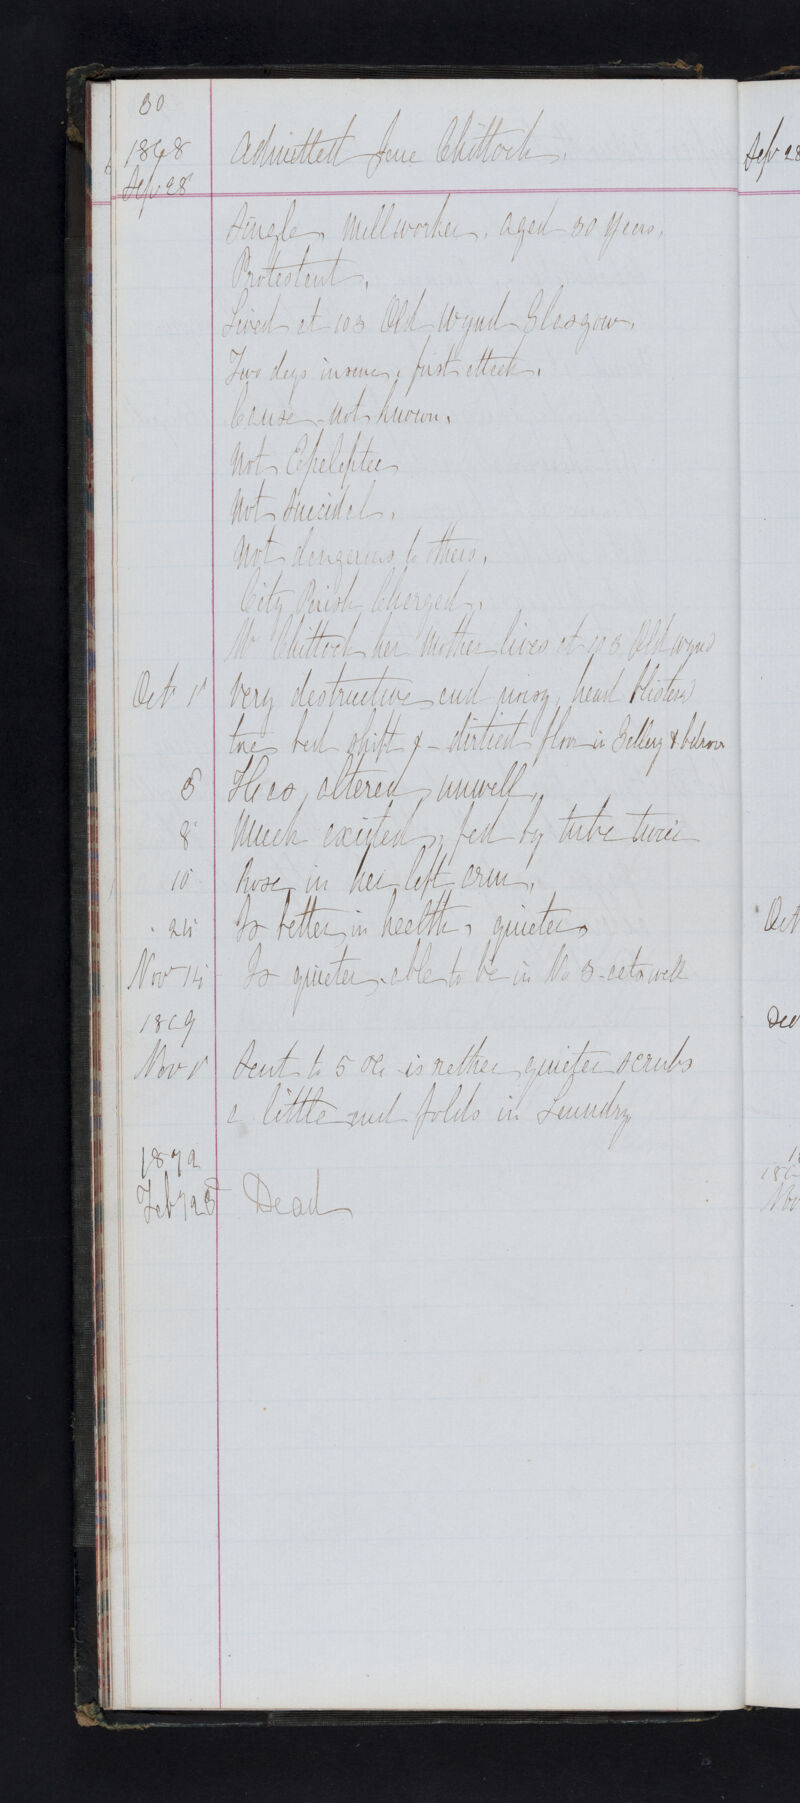 30
1868
Sep 28 Admitted Jane Chittock.
Single, Millworker, aged 30 years,
Protestant.
Lived at 103 Old Wynd Glasgow.
Two days insane, first attack.
Cause not known.
Not Epileptic
Not Suicidal.
Not dangerous to others.
City Parish Charged.
Chittock her Mother lives at 103 Old Wynd
Oct 1 Very destructive and noisy, head Blistered
tore bed shift & dirtied floor in
8 Much excited, fed by tube twice
10 in her left arm.
Is better in health, quieter
Nov 14 Is quieter, able to be in No 3 eats well
1869
Nov 1 Sent to 5 is rather quieter scrubs
a little and folds in Laundry
1872
Feby 23 Dead
Sep 28
Oct
Dec
Nov